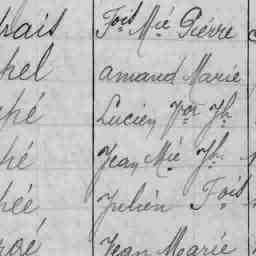 rais Fois Mié Pierre
kel Amand Marie
hé Lucien Jh
hé Jean Mié Jh
hée Julien Fois
oé Jean Marie